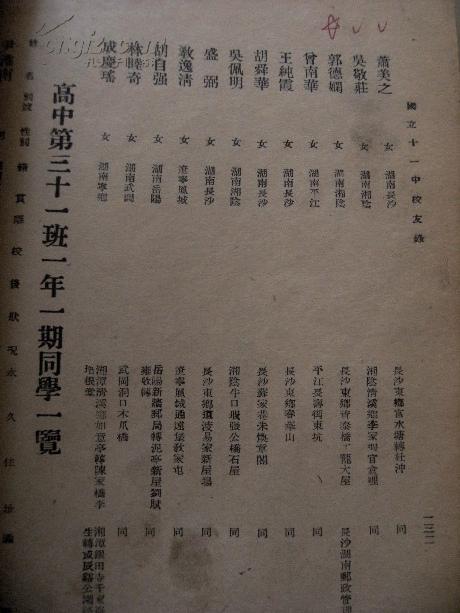 國立十一中校友錄
蕭美之 女 湖南長沙 長沙東鄉官水塘轉社沖 同
吳敬莊 女 湖南湘陰 湘陰清溪鄉李家塅官倉裡 同
郭德嫻 女 湖南湘陰 長沙東鄉青泰橋上龍大屋 長沙湖南郵政管理
曾南華 女 湖南平江 平江長壽街東坑 同
王純霞 女 湖南長沙 長沙東鄉春華山 同
胡舜華 女 湖南長沙 長沙蘇家巷朱煥章閣 同
吳佩明 女 湖南湘陰 湘陰牛口嘏張公橋石屋 同
盛弼 女 湖南長沙 長沙東鄉道淩易家新屋場 同
敎逸清 女 遼寧鳳城 遼寧鳳城通遠堡敎家屯 同
胡自强 女 湖南岳陽 岳陽新牆郵局轉泥亭新屋劉賦雍收轉 同
林 奇 女 湖南武岡 武岡洞口木瓜橋 同
成慶瑤 女 湖南寧鄉 湘潭清溪鄉如意亭轉陳家橋李培根堂
高中第三十一班一年一期同學一覽
姓名 別號 性別 籍貫 離校後狀況 永久住址
一三二